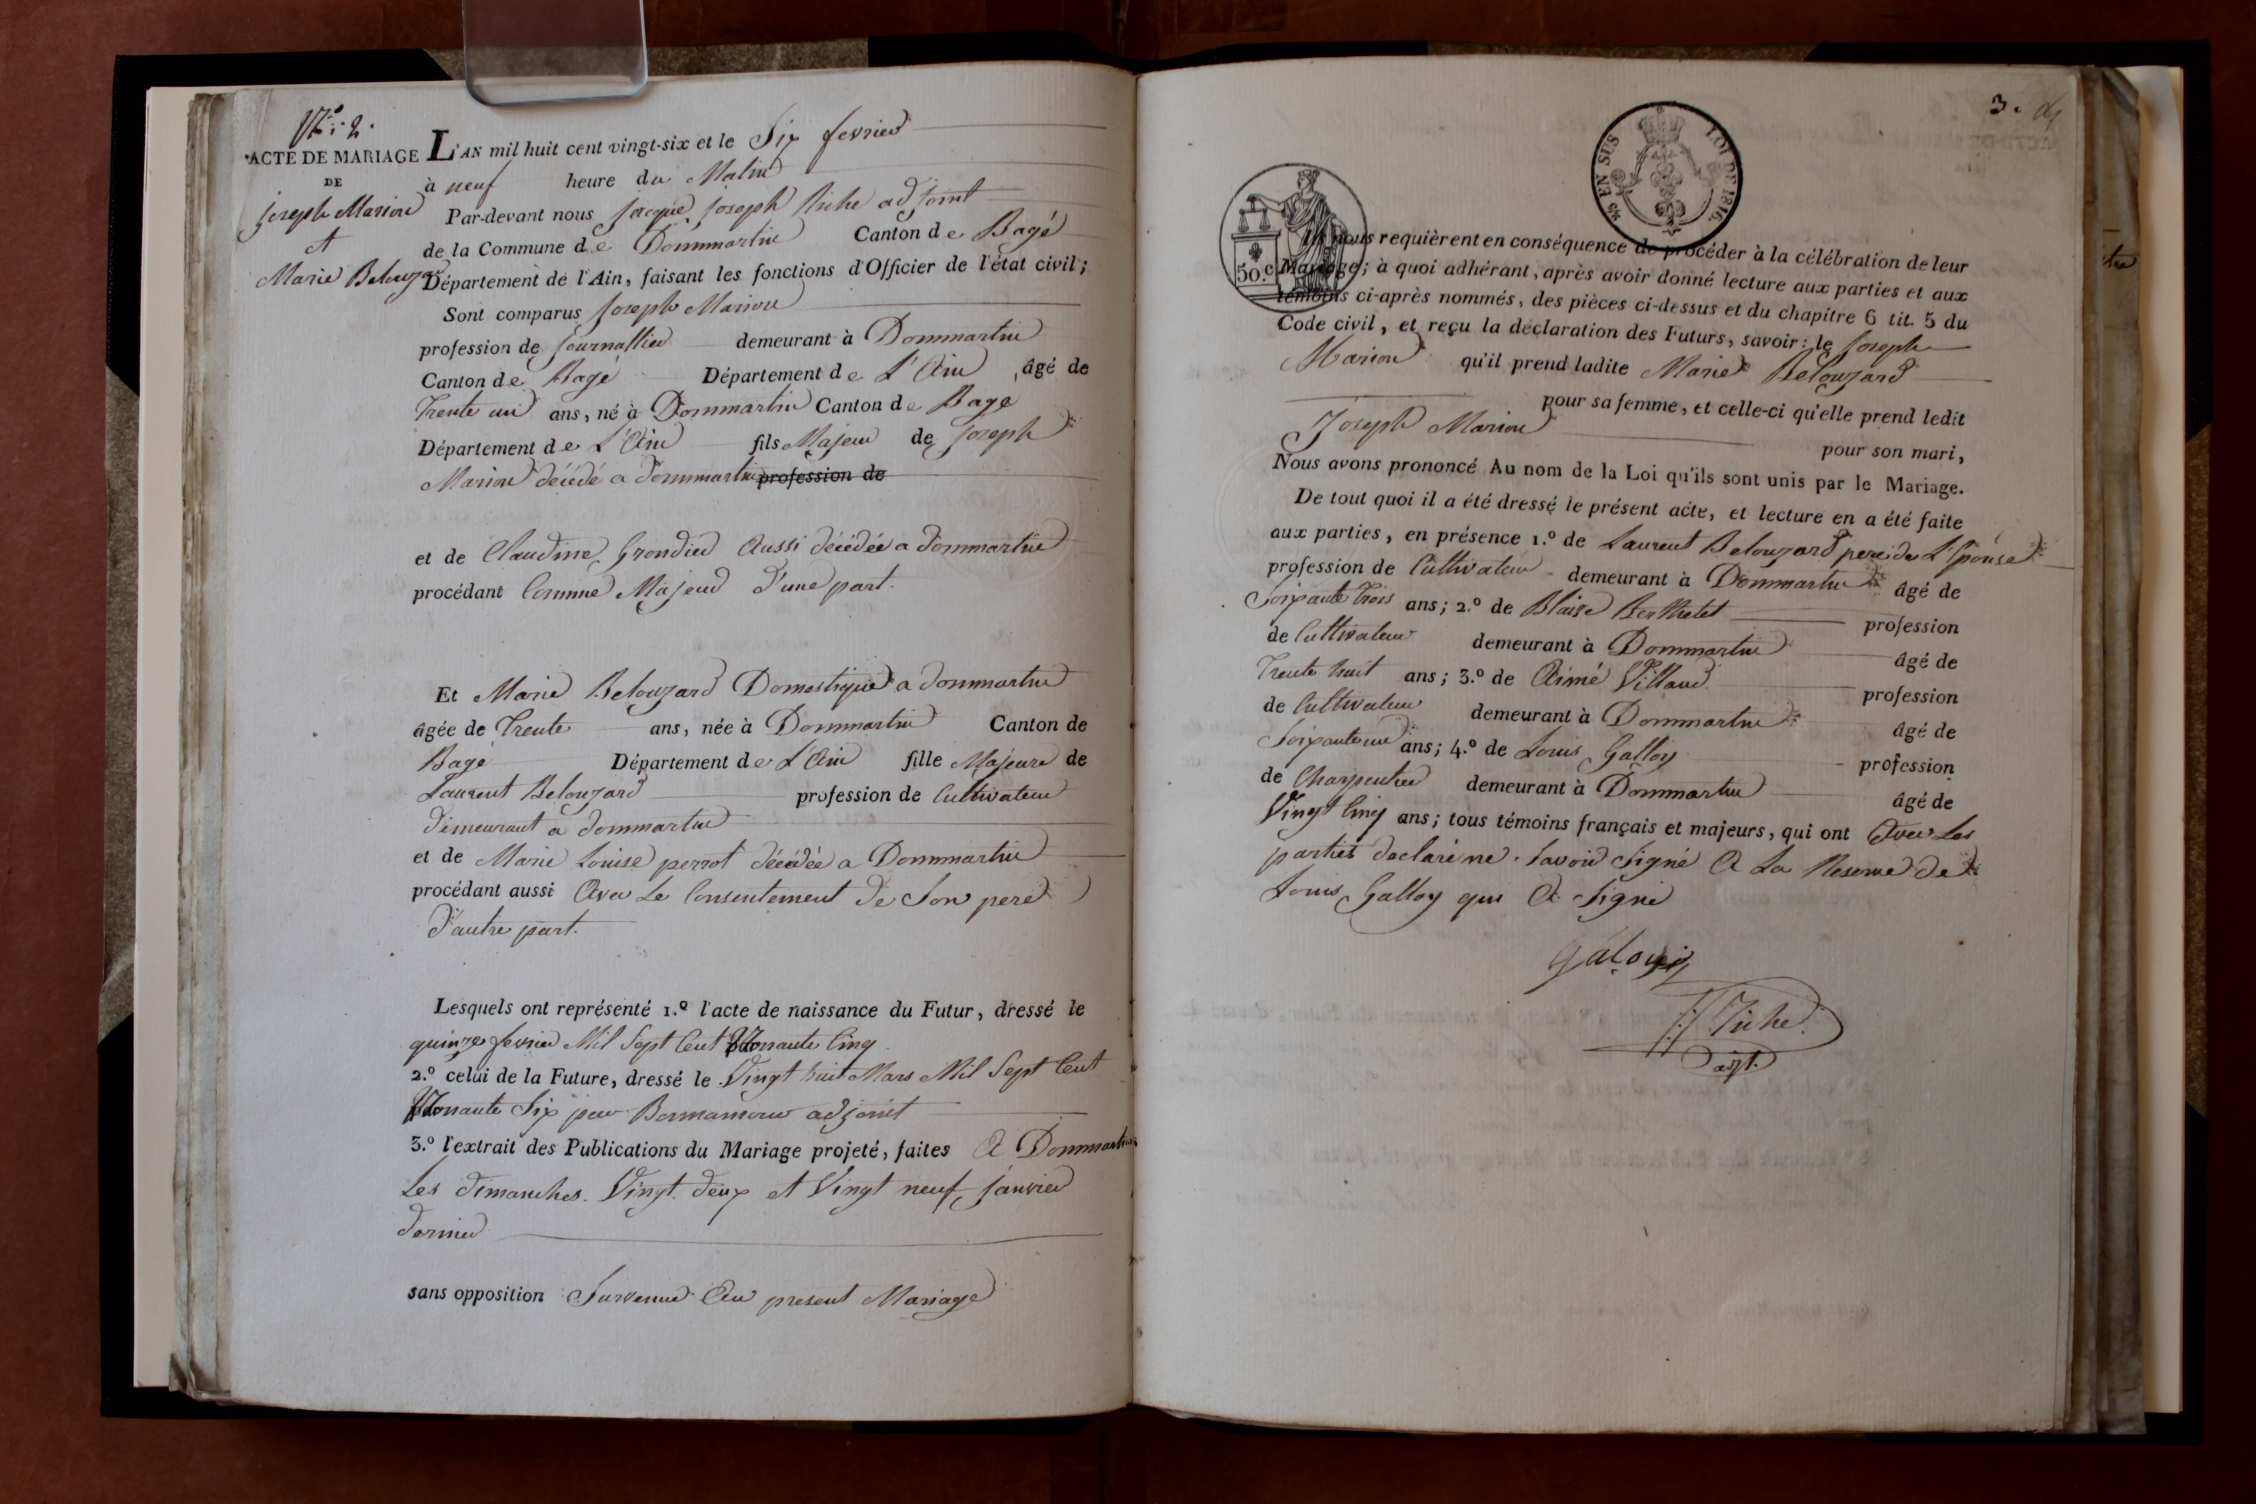 N.° 2.
ACTE DE MARIAGE
DE
joseph Marion
et
Marie Belouzard
L'AN mil huit cent vingt-six et le Six fevrier
à neuf heure du Matin
Par-devant nous jacque joseph Riche adjoint
de la Commune de Dommartin Canton de Bagé
Département de l'Ain, faisant les fonctions d'Officier de l'état civil;
Sont comparus joseph Marion
profession de journallier demeurant à Dommartin
Canton de Bagé Département de L'Ain âgé de
Trente un ans, né à Dommartin Canton de Bagé
Département de L'Ain fils Majeur de joseph
Marion décédé a dommartin profession de
et de Claudine Grondier Aussi décédée a dommartin
procédant Comme Majeur d'une part.
Et Marie Belouzard Domestique a dommartin
âgée de Trente ans, née à Dommartin Canton de
Bagé Département de L'Ain fille Majeure de
Laurent Belouzard profession de Cultivateur
demeurant a dommartin
et de Marie Louise perrot décédée a Dommartin
procédant aussi Avec Le Consentement de Son pere
d'autre part.
Lesquels ont représenté 1.° l'acte de naissance du Futur, dressé le
quinze fevrier Mil Sept Cent Nonante Cinq
2.° celui de la Future, dressé le Vingt huit Mars Mil Sept Cent
Nonante Six par Bonmamour adjoint
3.° l'extrait des Publications du Mariage projeté, faites A Dommartin
Les dimanches Vingt deux et Vingt neuf janvier
dernier
sans opposition Survenue Au present Mariage
3.
45 EN SUS
LOI DE 1816.
50.c
Ils nous requièrent en conséquence de procéder à la célébration de leur
Mariage; à quoi adhérant, après avoir donné lecture aux parties et aux
témoins ci-après nommés, des pièces ci-dessus et du chapitre 6 tit. 5 du
Code civil, et reçu la déclaration des Futurs, savoir: le joseph
Marion qu'il prend ladite Marie Belouzard
pour sa femme, et celle-ci qu'elle prend ledit
Joseph Marion pour son mari,
Nous avons prononcé Au nom de la Loi qu'ils sont unis par le Mariage.
De tout quoi il a été dressé le présent acte, et lecture en a été faite
aux parties, en présence 1.° de Laurent Belouzard pere de L'Epouse
profession de Cultivateur demeurant à Dommartin âgé de
Soixante trois ans; 2.° de Blaise Berthelet profession
de Cultivateur demeurant à Dommartin âgé de
Trente huit ans; 3.° de Aimé Villaud profession
de Cultivateur demeurant à Dommartin âgé de
Soixante un ans; 4.° de Louis Galloy profession
de Charpentier demeurant à Dommartin âgé de
Vingt Cinq ans; tous témoins français et majeurs, qui ont Avec Les
parties declaré ne Savoir Signé A La Reserve de
Louis Galloy qui A Signé
Riche
adjt.